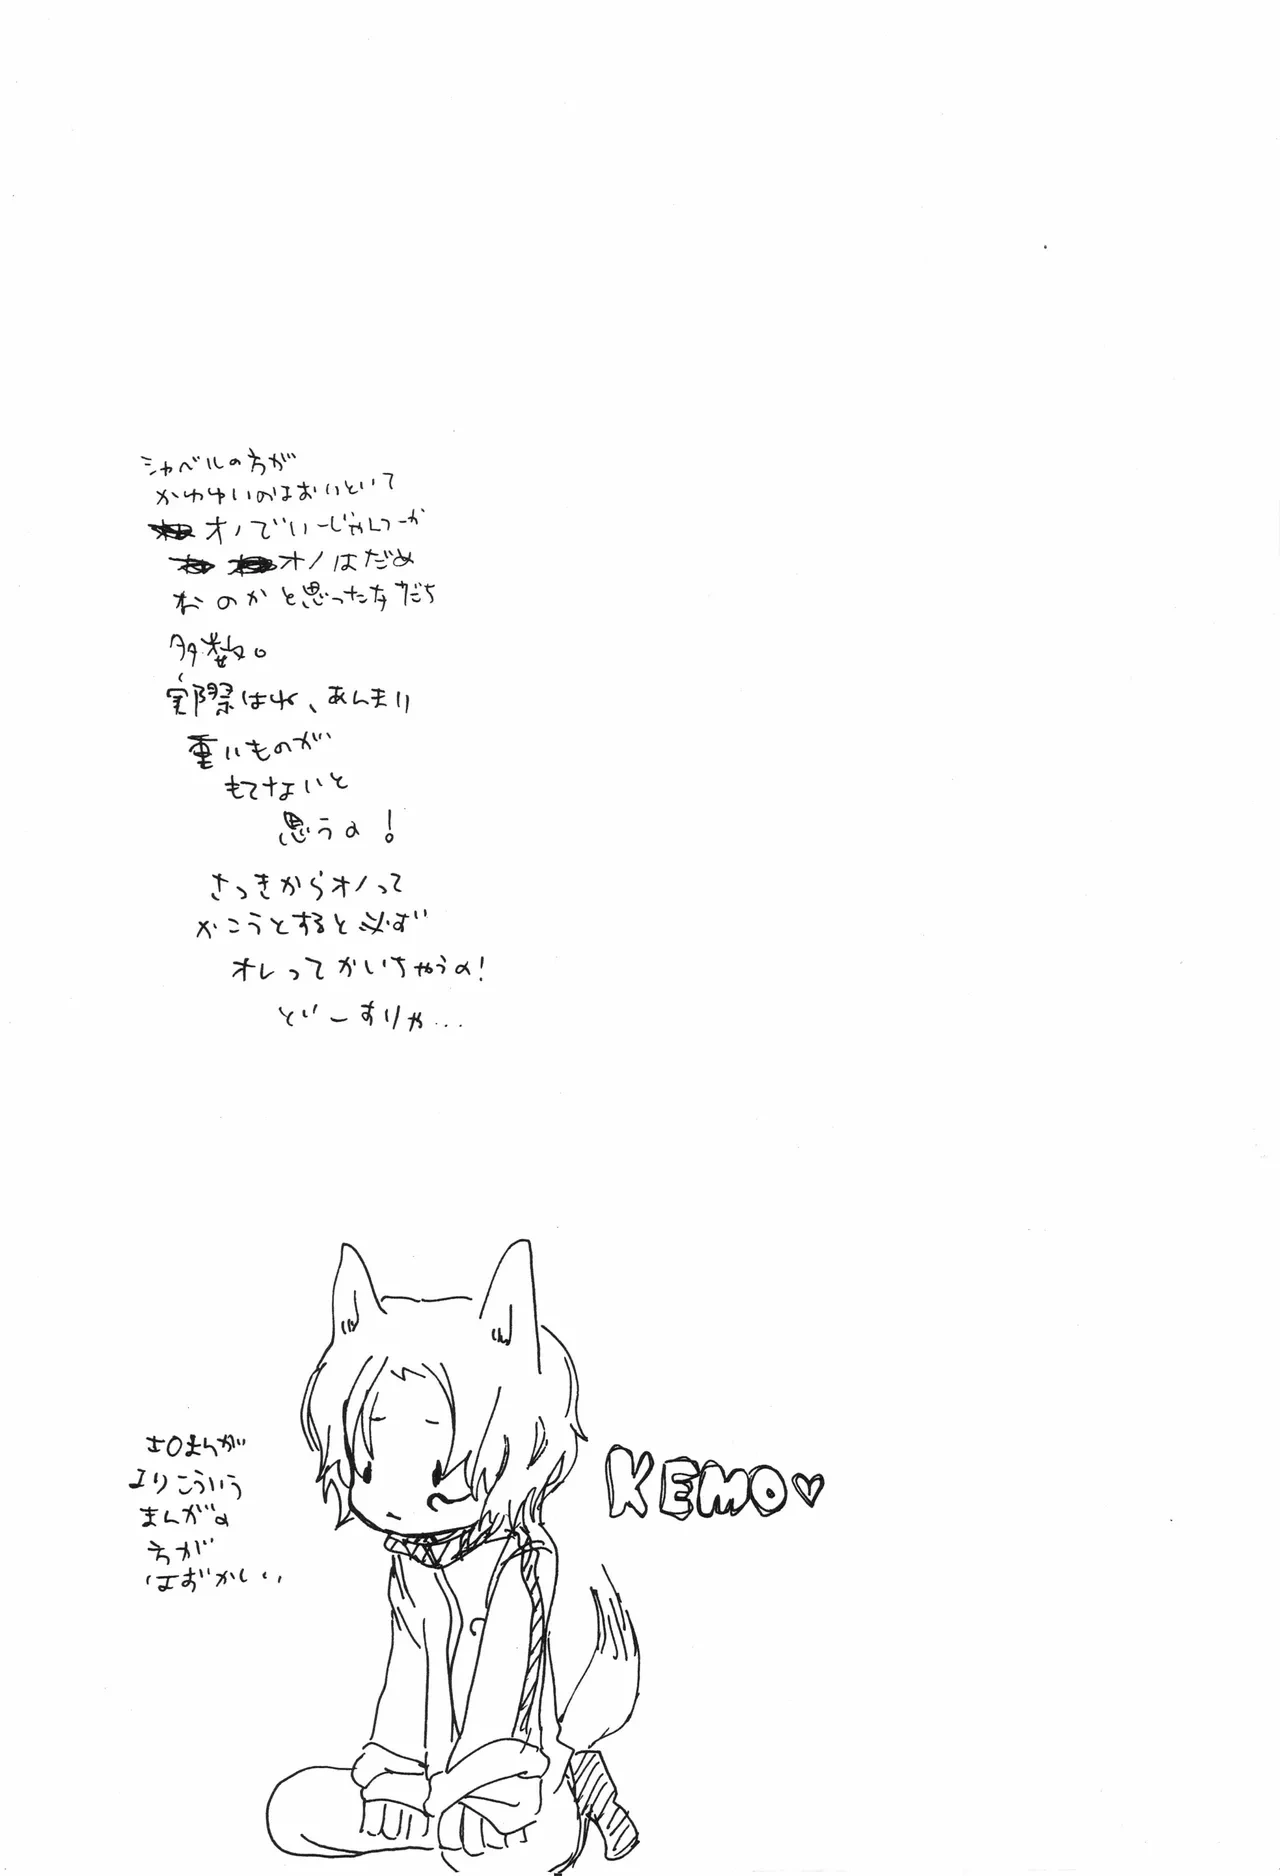 シャベルの方が
かわゆいのはおいといて
オノでいーじゃんつーか
オノはだめ
なのかと思ったな だち
多数。
実際はね、あんまり
重いものが
もてないと
思うの！
さっきからオノって
かこうとすると必ず
オレってかいちゃうの！
どーすりゃ...
KEMO♡
エロまんが
よりこういう
まんがの
方が
はずかしい